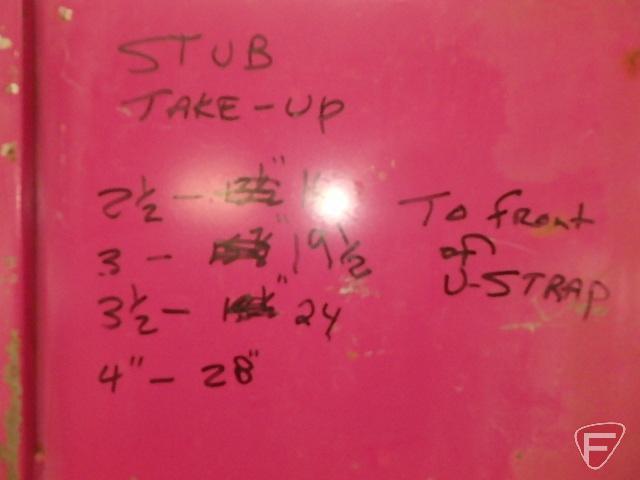 STUB
TAKE-UP
2 1/2 -
3 - 19 1/2
3 1/2 - 24
4" - 28"
To front
of
U-STRAP
F